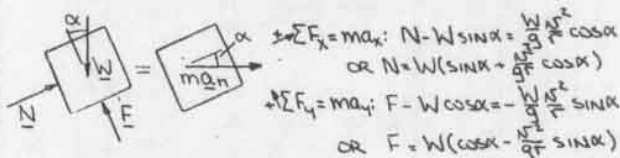 α
W
N
F
=
α
ma_n
+↗ΣF_x = ma_x: N - W sinα = W/g v²/r cosα
OR N = W(sinα + v²/gr cosα)
+↖ΣF_y = ma_y: F - W cosα = - W/g v²/r sinα
OR F = W(cosα - v²/gr sinα)